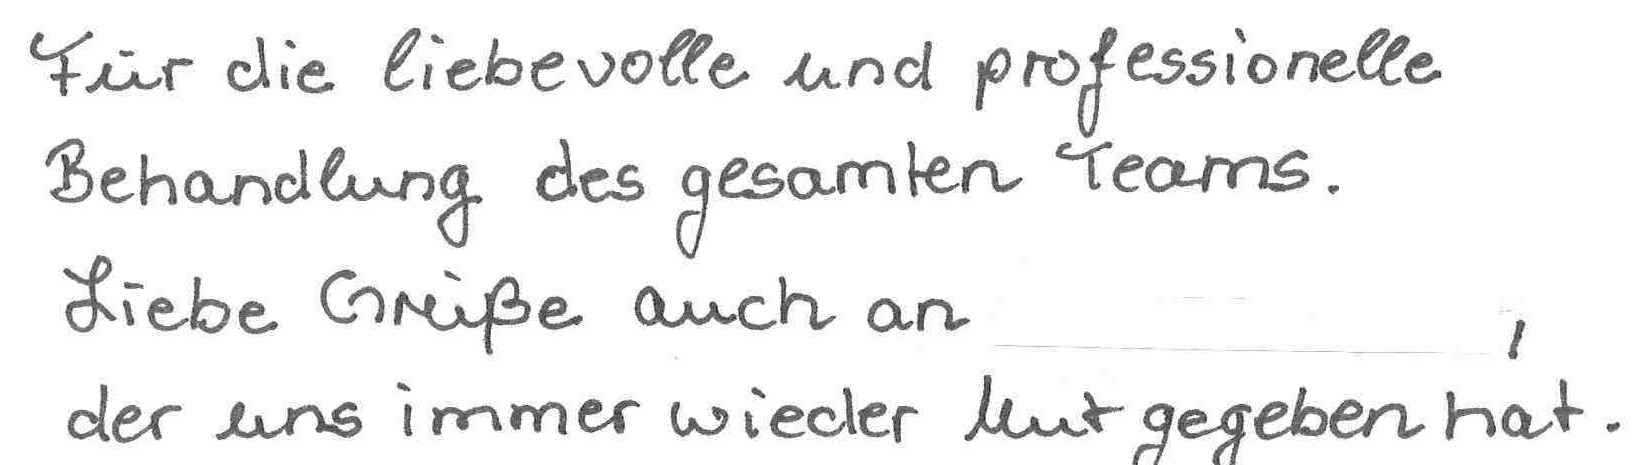 Für die liebevolle und professionelle
Behandlung des gesamten Teams.
Liebe Grüße auch an ,
der uns immer wieder Mut gegeben hat.